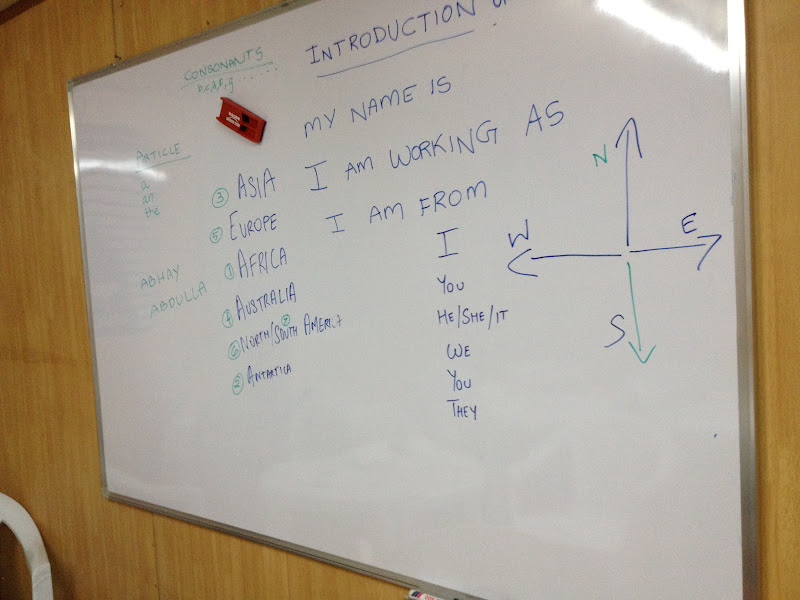 CONSONANTS
b, c, d, f, g ......
INTRODUCTION
MY NAME IS
I AM WORKING AS
I AM FROM
ARTICLE
a
an
the
ABHAY
ABDULLA
③ ASIA
⑤ EUROPE
① AFRICA
④ AUSTRALIA
⑥ NORTH/SOUTH ⑦ AMERICA
② ANTARTICA
I
YOU
HE/SHE/IT
WE
YOU
THEY
N
W
E
S